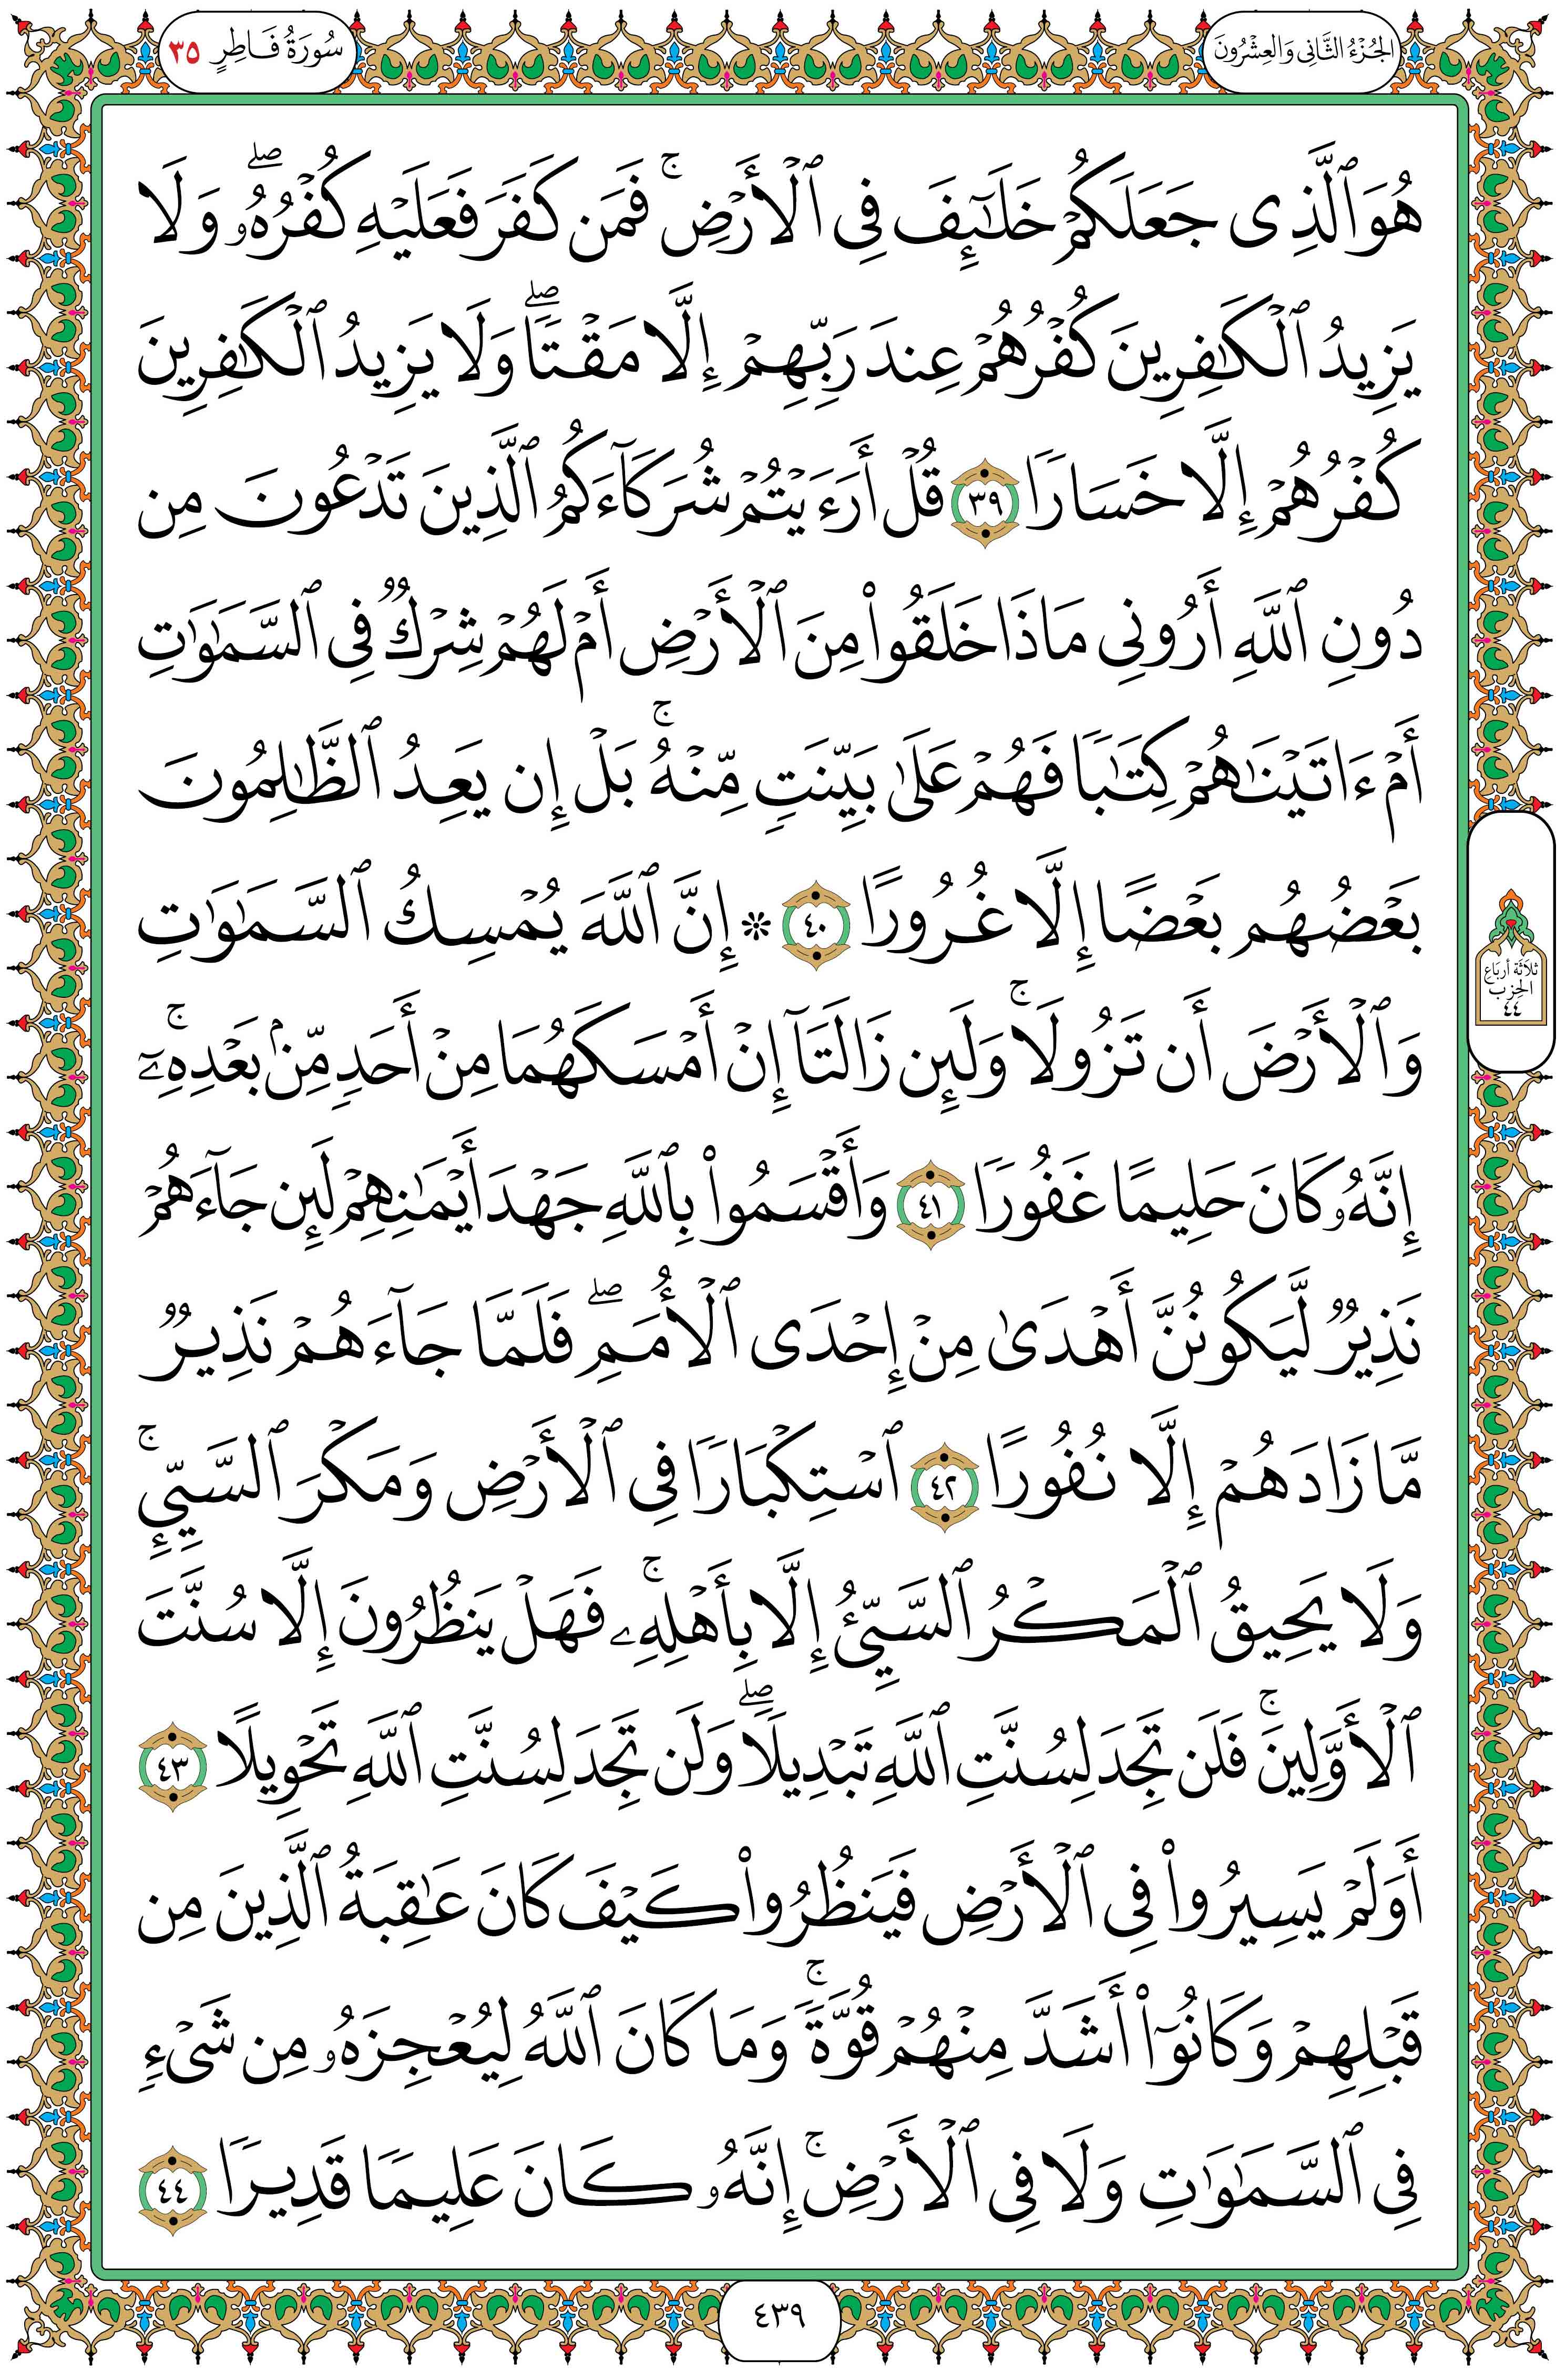 الجُزْءُ الثَّانِي وَالعِشْرُونَ
سُورَةُ فَاطِرٍ ٣٥
هُوَ ٱلَّذِى جَعَلَكُمْ خَلَٰٓئِفَ فِى ٱلْأَرْضِ ۚ فَمَن كَفَرَ فَعَلَيْهِ كُفْرُهُۥ ۖ وَلَا
يَزِيدُ ٱلْكَٰفِرِينَ كُفْرُهُمْ عِندَ رَبِّهِمْ إِلَّا مَقْتًا ۖ وَلَا يَزِيدُ ٱلْكَٰفِرِينَ
كُفْرُهُمْ إِلَّا خَسَارًا ٣٩ قُلْ أَرَءَيْتُمْ شُرَكَآءَكُمُ ٱلَّذِينَ تَدْعُونَ مِن
دُونِ ٱللَّهِ أَرُونِى مَاذَا خَلَقُوا۟ مِنَ ٱلْأَرْضِ أَمْ لَهُمْ شِرْكٌ فِى ٱلسَّمَٰوَٰتِ
أَمْ ءَاتَيْنَٰهُمْ كِتَٰبًا فَهُمْ عَلَىٰ بَيِّنَتٍ مِّنْهُ ۚ بَلْ إِن يَعِدُ ٱلظَّٰلِمُونَ
بَعْضُهُم بَعْضًا إِلَّا غُرُورًا ٤٠ ۞ إِنَّ ٱللَّهَ يُمْسِكُ ٱلسَّمَٰوَٰتِ
وَٱلْأَرْضَ أَن تَزُولَا ۚ وَلَئِن زَالَتَآ إِنْ أَمْسَكَهُمَا مِنْ أَحَدٍ مِّنۢ بَعْدِهِۦٓ ۚ
إِنَّهُۥ كَانَ حَلِيمًا غَفُورًا ٤١ وَأَقْسَمُوا۟ بِٱللَّهِ جَهْدَ أَيْمَٰنِهِمْ لَئِن جَآءَهُمْ
نَذِيرٌ لَّيَكُونُنَّ أَهْدَىٰ مِنْ إِحْدَى ٱلْأُمَمِ ۖ فَلَمَّا جَآءَهُمْ نَذِيرٌ
مَّا زَادَهُمْ إِلَّا نُفُورًا ٤٢ ٱسْتِكْبَارًا فِى ٱلْأَرْضِ وَمَكْرَ ٱلسَّيِّئِ ۚ
وَلَا يَحِيقُ ٱلْمَكْرُ ٱلسَّيِّئُ إِلَّا بِأَهْلِهِۦ ۚ فَهَلْ يَنظُرُونَ إِلَّا سُنَّتَ
ٱلْأَوَّلِينَ ۚ فَلَن تَجِدَ لِسُنَّتِ ٱللَّهِ تَبْدِيلًا ۖ وَلَن تَجِدَ لِسُنَّتِ ٱللَّهِ تَحْوِيلًا ٤٣
أَوَلَمْ يَسِيرُوا۟ فِى ٱلْأَرْضِ فَيَنظُرُوا۟ كَيْفَ كَانَ عَٰقِبَةُ ٱلَّذِينَ مِن
قَبْلِهِمْ وَكَانُوٓا۟ أَشَدَّ مِنْهُمْ قُوَّةً ۚ وَمَا كَانَ ٱللَّهُ لِيُعْجِزَهُۥ مِن شَىْءٍ
فِى ٱلسَّمَٰوَٰتِ وَلَا فِى ٱلْأَرْضِ ۚ إِنَّهُۥ كَانَ عَلِيمًا قَدِيرًا ٤٤
ثلاثة أرباع
الحزب
٤٤
٤٣٩